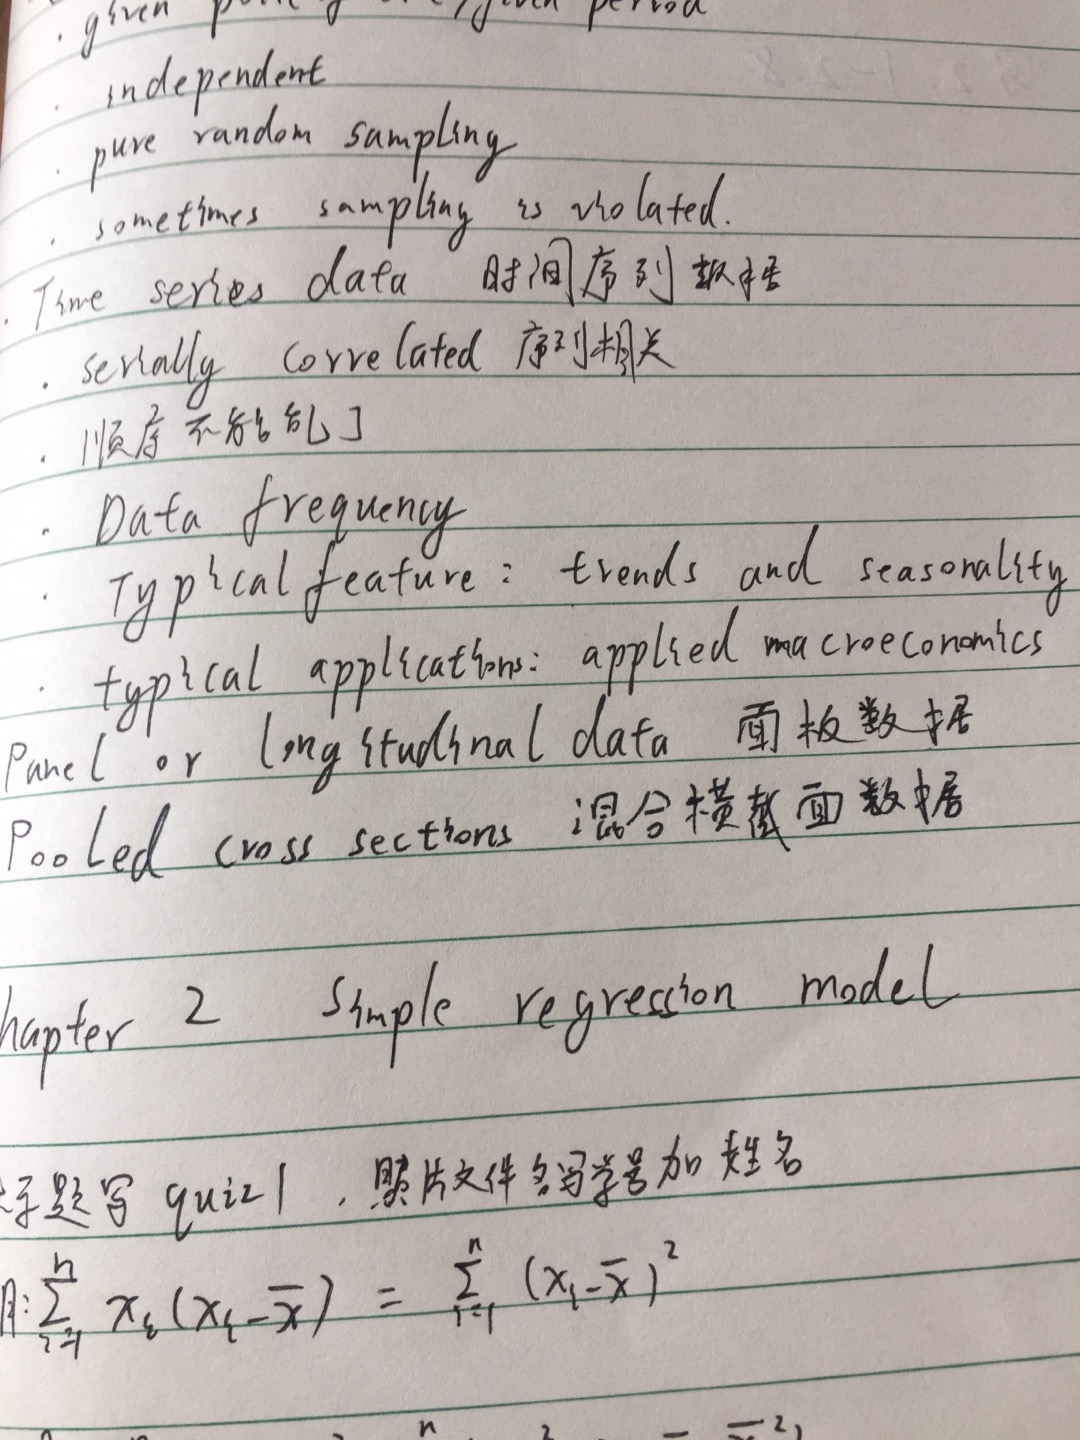 · given period
· independent
· pure random sampling
· sometimes sampling is violated.
· Time series data 时间序列数据
· serially correlated 序列相关
· 顺序不能乱了
· Data frequency
· Typical feature: trends and seasonality
· typical applications: applied macroeconomics
Panel or longitudinal data 面板数据
Pooled cross sections 混合横截面数据
hapter 2 Simple regression model
题写 quiz1 . 照片文件名写学号加姓名
: \sum_{i=1}^{n} x_i (x_i - \bar{x}) = \sum_{i=1}^{n} (x_i - \bar{x})^2